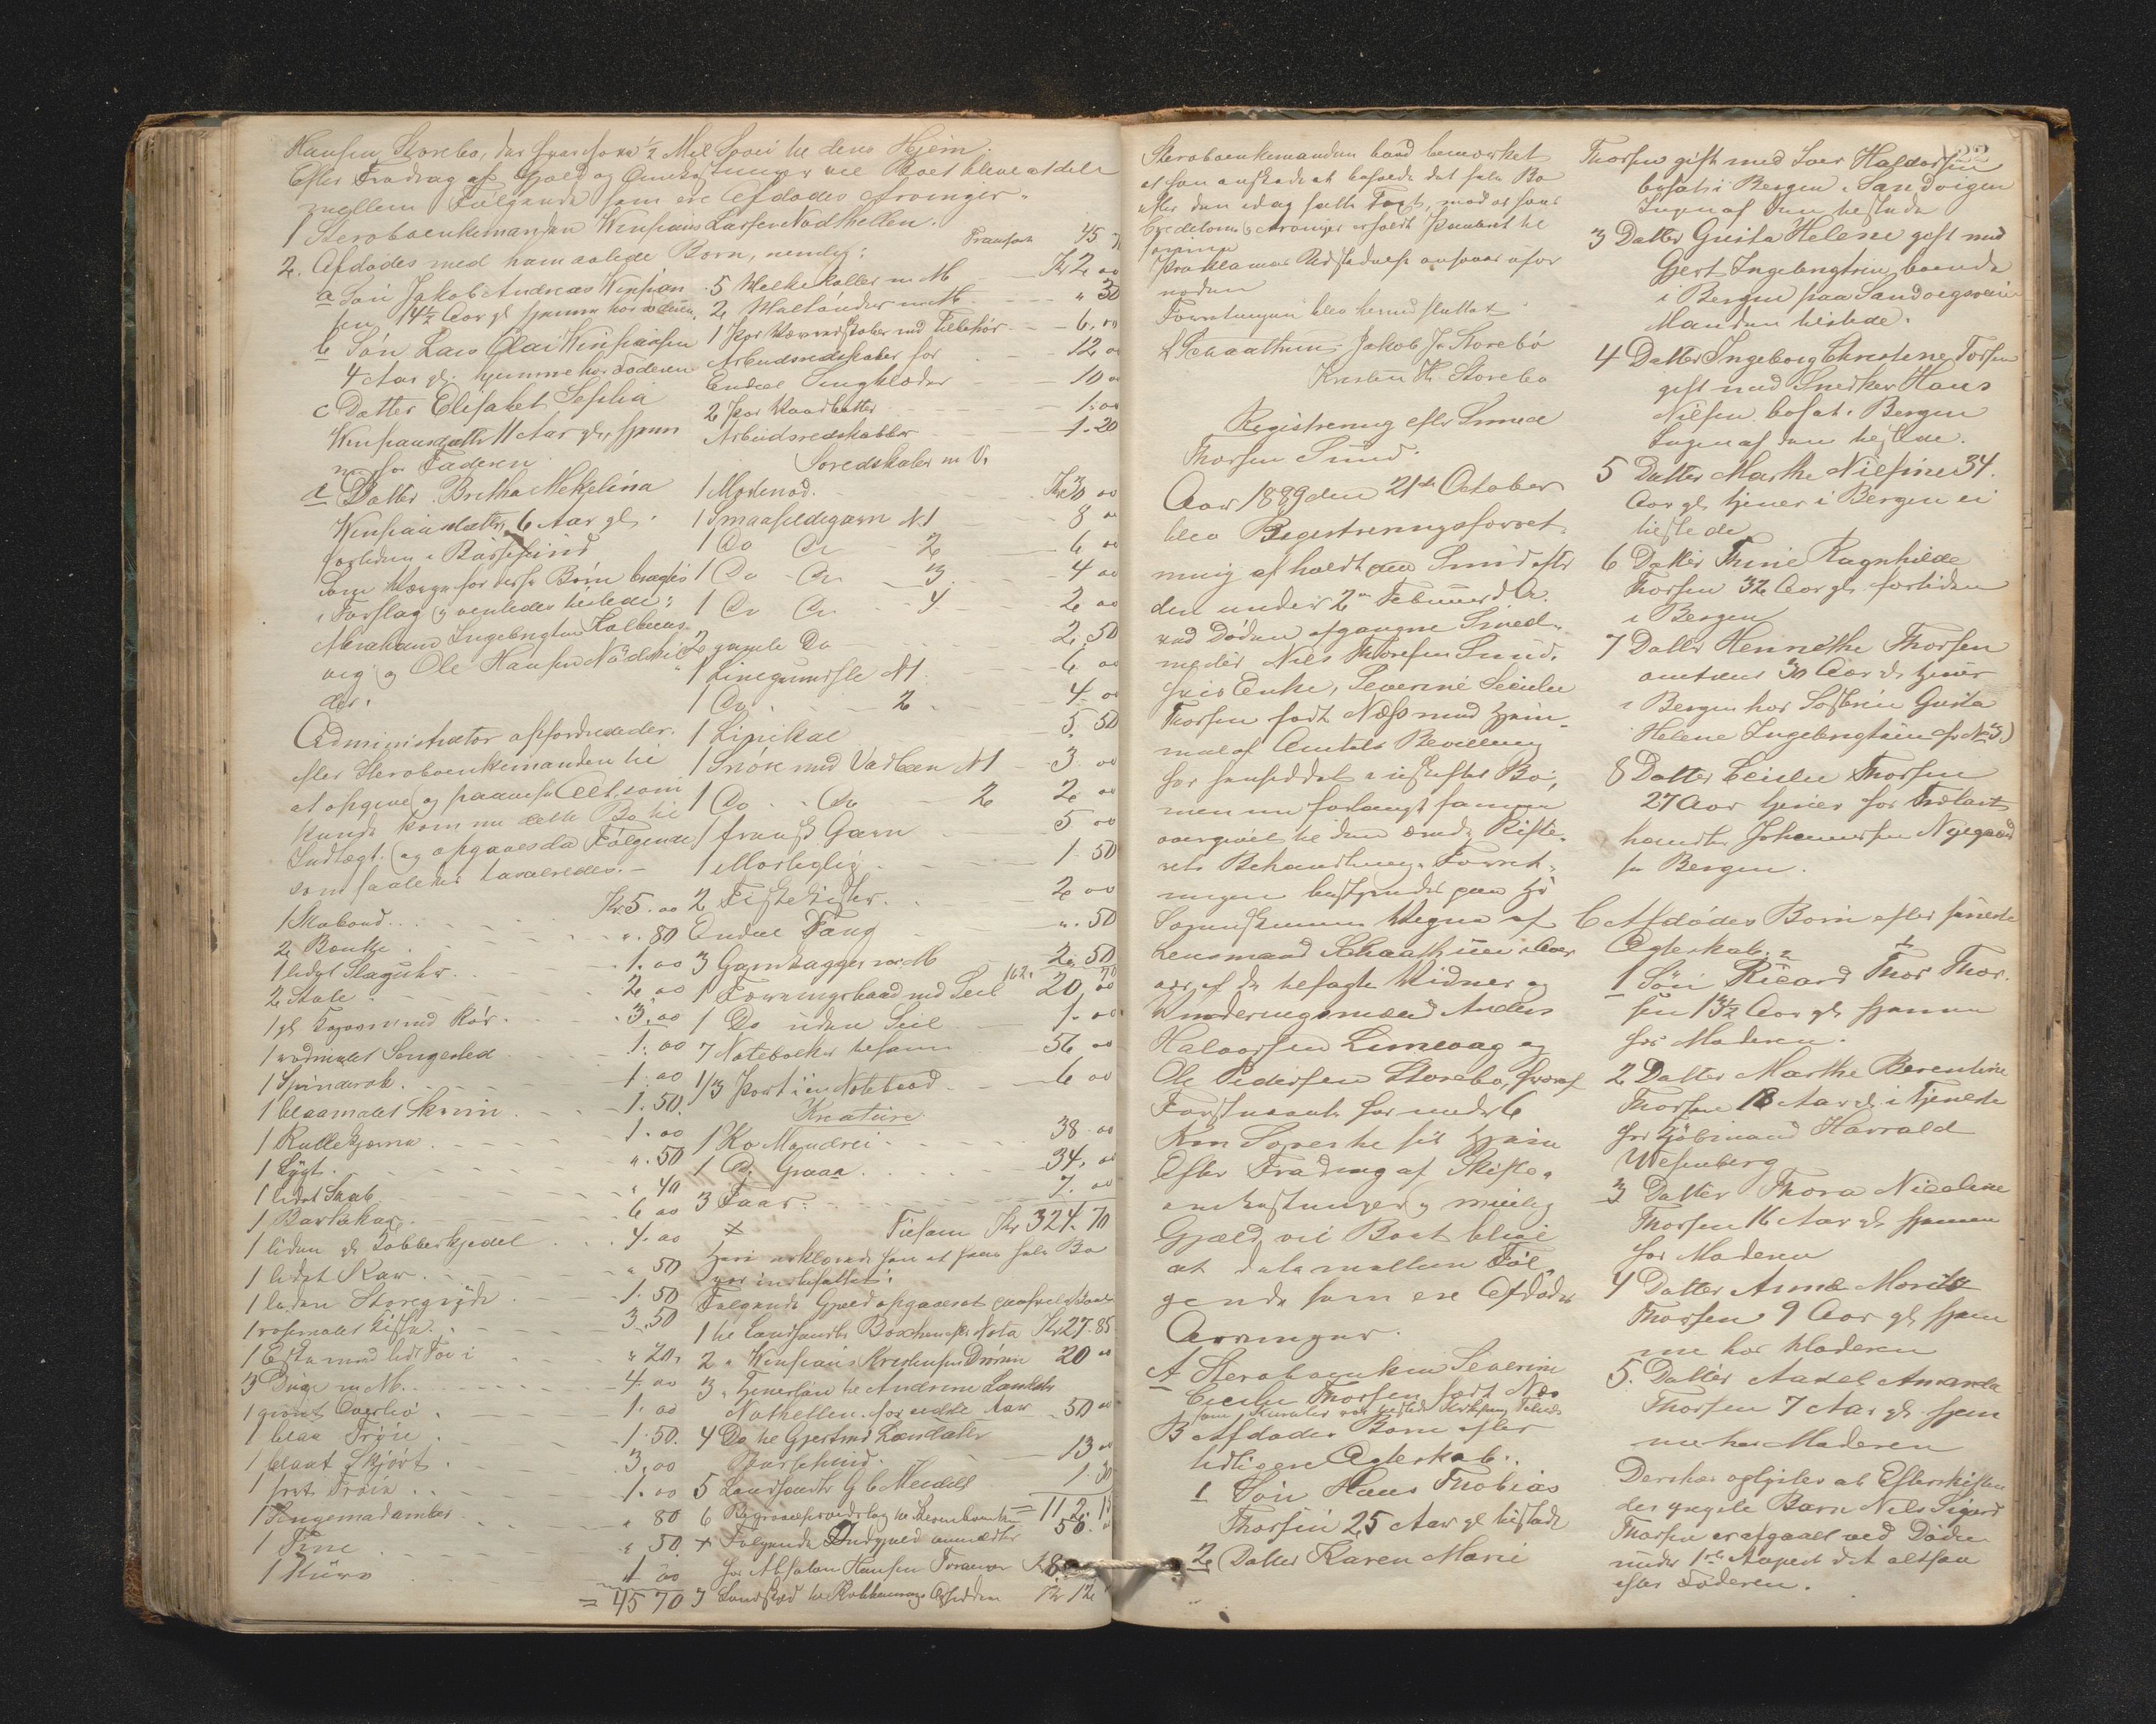 Hansen Storebø, der har for ½ Mil Søvei til dens Hjem.
Efter Fradrag af Gjæld og Omkostninger vil Boet blive at dele
mellem Følgende som ere Afdødes Arvinger:
1 Sterboenkemanden Wensians Larsen Nødthellen.
2. Afdødes med ham avlede Børn, nemlig:
a Søn Jakob Andreas Winsian
sen 14½ Aar gl hjemme hos Faderen
b Søn Lars Olai Winsiansen
4 Aar gl. hjemme hos Faderen
c Datter Elisabet Sesilia
Winsiansdatter 11 Aar gl, hjem
me hos Faderen
d Datter Bretha Mekelina
Winsiansdatter 6 Aar gl.
fortiden i
Som Værge for disse Børn bragtes
i Forslag og ventedes tilstede:
Abraham Ingebrigtsen
vig og Ole Hansen
der.
Administrator opfordrede der
efter Sterboenkemanden til
at opgive og paavise Alt, som
kunde komme dette Bo til
Indtægt, og opgaves da Følgende
som saaledes taxeredes.
1 Skabord Kr 5.00
2 Bænke ".80
1 lidet Slaguhr 1.00
2 Stole 2.00
1 gl Kakovn med Rør 3.00
1 rødmalet Sengested 1.00
1 Spinderok 1.00
1 blaamalet Skrin 1.50
1 Rullekjærne 1.00
1 Lygt ".50
1 lidet Saab " 40
1 Barkekar 6 00
1 liden gl Kobberkjedel 4.00
1 lidet Kar " 50
1 liden Storegryde 1.50
1 rosemalet Kiste 3.50
1 Eske med lidt Tøi i " 20
3 Duge m M. 4.00
1 grønt Overliv 1.00
1 blaa Trøie 1.50.
1 blaat Skjørt 3.00
1 sort Trøie 1.00
1 Sengemadamber " 80
1 Tine " 50
1 Kurv 1 00
= 45 70
Transport 45 70
5 Melkekoller m M Kr 2 00
2 Maltønder m M " 30
1 Par Kærreredskaber med Tilbehør 6.00
Arbeidsredskaber for 12 00
Endeel Sengklæder 10 00
2 Par Vaadbotter 1.00
Arbeidsredskabber 1.20
Søredskaber m V.
1 Mødenod Kr 30 00
1 Smaasildegarn N1 8 00
1 Do Do 2 6 00
1 Do Do 3 4 00
1 Do Do 4 2 00
2 gamle Do 2.50
1 Linegrundsle N1 6 00
1 Do 2 4.00
1 Linikal 5 50
1 Snøre med Vadbæn N1 3 00
1 Do Do 2 2 00
1 fransk Garn 5 00
1 Morteglig 1 50
2 Fiskekister 2 00
Endeel Tang ".50
3 Garnkagger m M 2.50
162.70
1 Færningsbaad med Seil 20.00
1 Do uden Seil 1.00
7 Notebolker tilsamm 56 00
1/3 Part i en Notebaad 6 00
Kreature
1 Ko Mandrei 38.00
1 Do Graaa 34.00
3 Faar 7.00
Tilsam Kr 324.70
Han erklærede han at hans hele Bo
var indbefattet.
Følgende Gjæld opgaves at paahvile Boet
1 til Landhandler Boxhen efter Nota Kr 27.85
2 " Winsians Kristensen Drønen 20 "
3 " Tjenerløn til Andrine Larsdatter
Nøthellen for sidste Aar 50 "
4 Do til Gjertrud Larsdatter
13 "
5 Landhandler G C Mendell 1 30
6 Begravelsesudlæg til Sterboenkem = 112.15
50. "
x Følgende Indgjæld anmeldtes
hos Absalon Hansen Kr 8.
7 Landskyld til Kr 12
Sterboenkemanden havde bemærket
at han ønskede at beholde det hele Bo
efter den idag satte Taxt, mod at hans
Creditorer & Arvinger erholdt Paakrævt til
foranging
Proklamas Udstædelse ansaaes ufor
nøden
Forretningen blev hermed sluttet
L Schaathun. Jakob J. Storebø
Kristen H. Storebø
Registrering efter Smed
Thorsen Sund.
Aar 1889 den 21de October
blev Registreringsforret
ning afholdt paa Sund efter
den under 2den Februar d A.
ved Døden afgangne Smed
mester Nils Thorsen Sund.
hvis Enke, Severine Sesilie
Thorsen født Næss med Hjem
mel af Amtets Bevilling
har hensiddet i uskiftet Bo,
men nu forlangt samme
overgivet til den ændige Skifte
rets Behandling. Forret
ningen bestyredes paa Hr
Sorenskriverens Vegne af
Lensmand Schaathun i Over
vær af de tilsagte Vidner og
Vurderingsmænd Anders
Halvorsen Limevaag og
Ole Pedersen Storebø, hvoraf
Førstnævnte har under 6
Km Søvei til sit Hjem
Efter Fradrag af Skifte
omkostninger & mulig
Gjæld vil Boet blive
at dele mellem Føl
gende som ere Afdødes
Arvinger.
A Sterboenken Severine
Cecilie Thorsen født Næs
B Afdødes Børn efter
tidligere Ægteskab.
1 Søn Hans Thobias
Thorsen 25 Aar gl tilstede
2 Datter Karen Marie
22
Thorsen gift med Iver Haldorsen
bosat i Bergen i Sandvigen
Ingen af dem tilstede
3 Datter Gusta Helene gift med
Gjert Ingebrigtsen boende
i Bergen paa Sandvigsveien
Manden tilstede.
4 Datter Ingeborg Christene Torsen
gift med Snedker Hans
Nilsen bosat i Bergen
Ingen af dem tilstede.
5 Datter Marthe Nilsine 34.
Aar gl tjener i Bergen ei
tilstede
6 Datter Trine Ragnhilde
Thorsen 32 Aar gl fortiden
i Bergen
7 Datter Henriethe Thorsen
omtrent 30 Aar gl tjener
i Bergen hos Søsteren Gusta
Helene Ingebrigtsen (fr No 3)
8 Datter Cecilie Thorsen
27 Aar tjener hos Trælast
handler Johannessen Nygaard
i Bergen.
C Afdødes Børn efter seneste
Ægteskab:
1 Søn Ricard Thor Thor
sen 13½ Aar gl hjemme
hos Moderen.
2 Datter Marthe Berentine
Thorsen 18 Aar gl i Tjeneste
hos Kjøbmand Harrald
Wesenberg
3 Datter Thora Nicoline
Thorsen 16 Aar gl hjemme
hos Moderen
4 Datter Anna Monita
Thorsen 9 Aar gl hjem
me hos Moderen
5. Datter Axel Amanda
Thorsen 7 Aar gl hjem
me hos Moderen
Derhos oplystes at Efterskiften
des yngste Barn Nils Sigurd
Thorsen er afgaaet ved Døden
under 1ste August d A altsaa
efter Faderen.